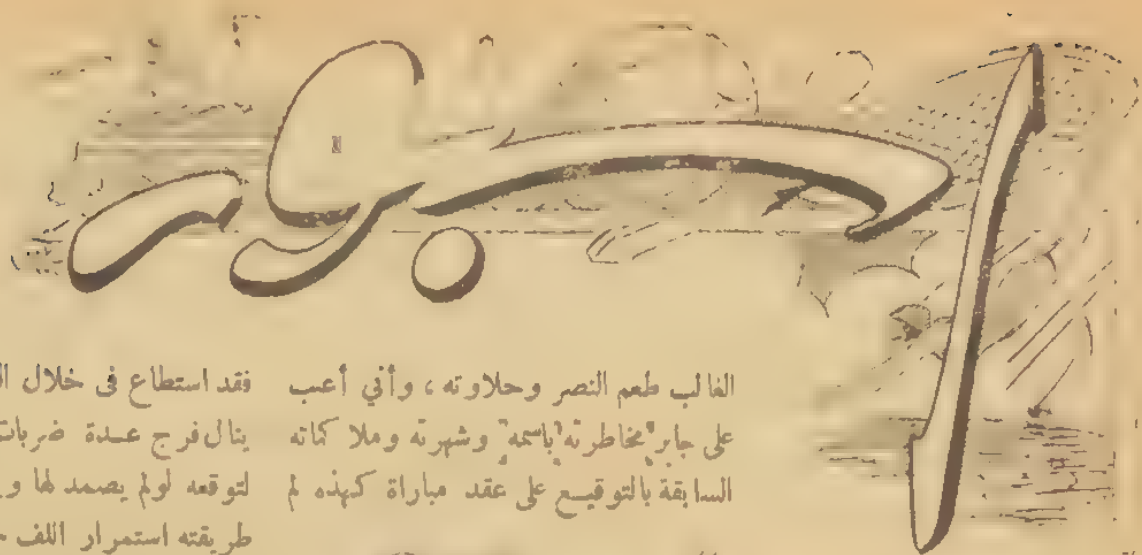 الغالب طعم النصر وحلاوته ، وأني أعب
على جابر مخاطرته باسمه وشهرته وملاكماته
السابقة بالتوقيع على عقد مباراة كهذه لم
فقد استطاع فى خلال
ينال فرج عدة ضربات
لتوقعه لولم يصمد لها و
طريقته استمرار اللف